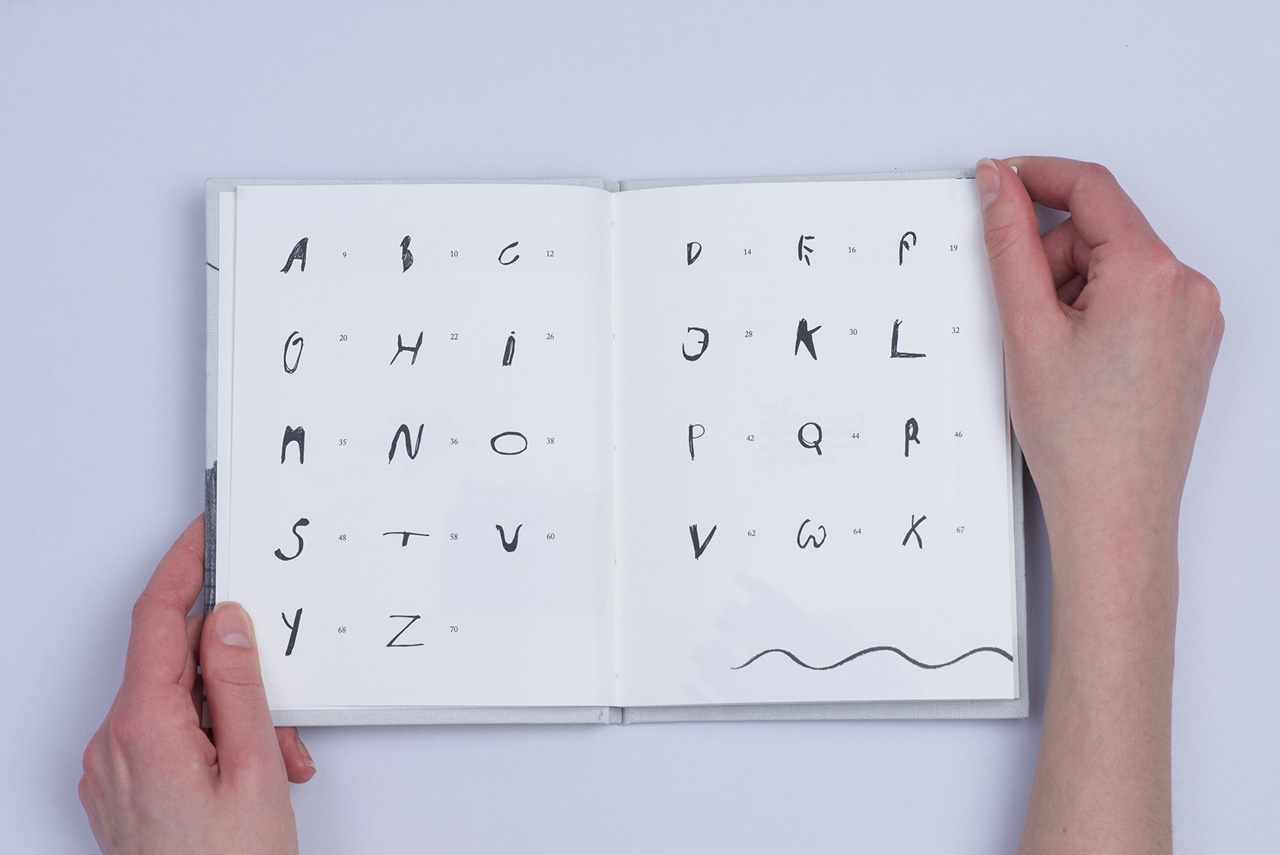 A 9 B 10 C 12 D 14 E 16 F 19
G 20 H 22 i 26 J 28 K 30 L 32
M 35 N 36 O 38 P 42 Q 44 R 46
S 48 T 58 U 60 V 62 W 64 X 67
Y 68 Z 70